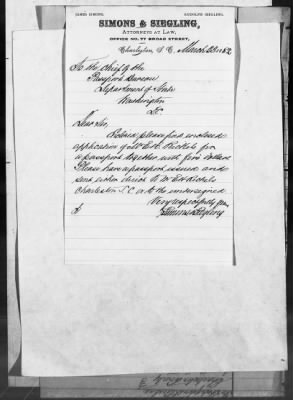 JAMES SIMONS. RUDOLPH SIEGLING.
SIMONS & SIEGLING,
ATTORNEYS AT LAW,
OFFICE NO. 77 BROAD STREET,
Charleston, S. C. March 23 1882
To the Chief of the
Passport Bureau
Department of State
Washington
D.C.
Dear Sir,
Below please find enclosed
application of Mr E. H.
for
a passport together with five dollars
Please have a passport issued and
sent either direct to Mr E. H.
Charleston S.C. or to the undersigned
Very respectfully yours
Simons & Siegling